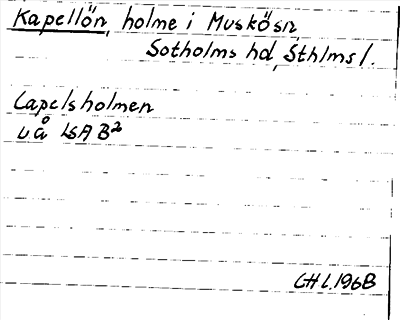 Kapellön, holme i Muskösn,
Sotholms hd, Sthlms l.
Capelsholmen
u å LSA B²
CHL 1968